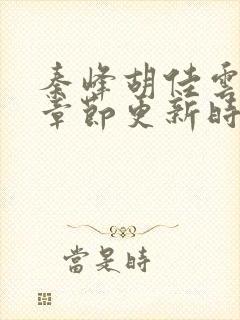 秦峰胡佳雲
章節更新時
當是時